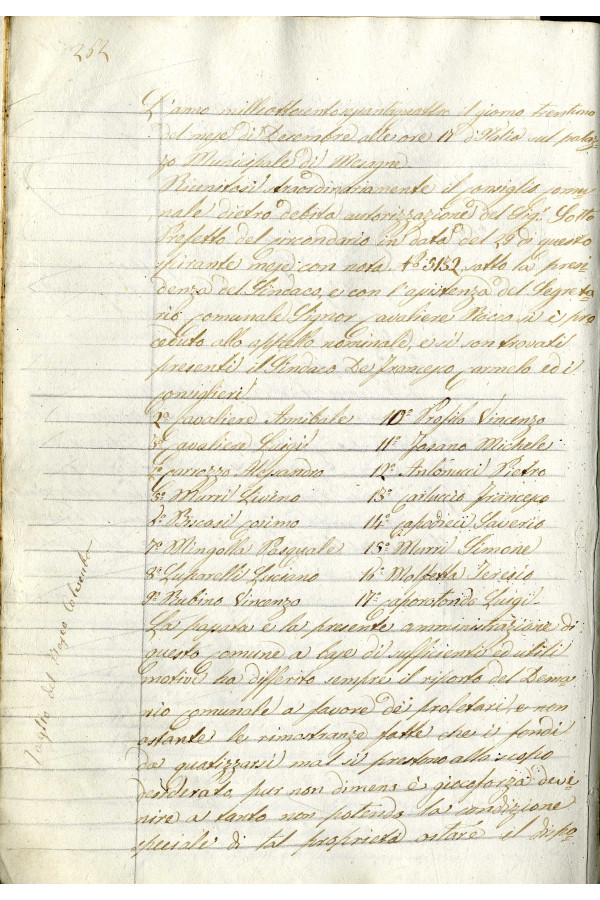 252
L'anno milleottocentosessantaquattro il giorno trentuno
del mese di Decembre alle ore 17 d'Italia sul palaz-
zo Municipale di Mesagne
Riunitosi straordinariamente il consiglio comu-
nale dietro debita autorizzazione del Sig.r Sotto
Prefetto del circondario in data del 29 di questo
spirante mese con nota N.o 5152 sotto la presi-
denza del Sindaco, e con l'assistenza del Segreta-
rio comunale Signor Cavaliere Rocco si è pro
ceduto allo appello nominale, e si son trovati
presenti il Sindaco De Francesco Carmelo ed i
consiglieri
2.o Cavaliere Annibale 10.o Profilo Vincenzo
3.o Cavaliere Luigi 11.o Fasano Michele
Alessandro 12.o Antonucci Pietro
5.o Murri Livino 13.o Carluccio Francesco
Cosimo 14.o Capodieci Saverio
7.o Mingolla Pasquale 15.o Murri Simone
8.o Luparelli Luciano 16.o Molfetta Teresio
9.o Rubino Vincenzo 17.o Caporotondo Luigi
La passata e la presente amministrazione di
questo comune a base di sufficienti ed utili
motivi ha differito sempre il riparto del Dema-
nio comunale a favore de' proletari, e non
ostante le rimostranze fatte che i fondi
da quotizzarsi mal si prestano allo scopo
desiderato, pur non dimeno è giocoforza deve-
nire a tanto non potendo la condizione
speciale di tal proprietà ostare il dispo-
Taglio del Bosco Colombo